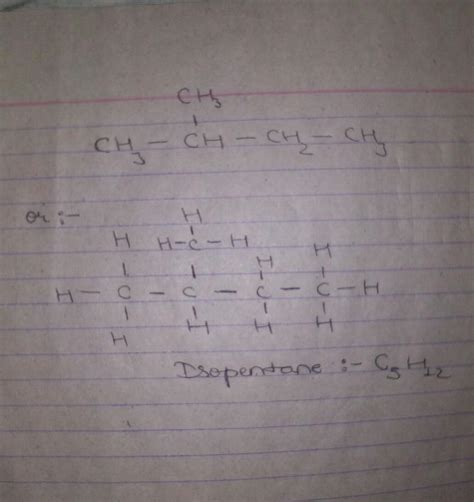 CH3
CH3 – CH – CH2 – CH3
or :-
H
H H–C–H H H
H – C – C – C – C – H
H H H H
Isopentane :- C5H12